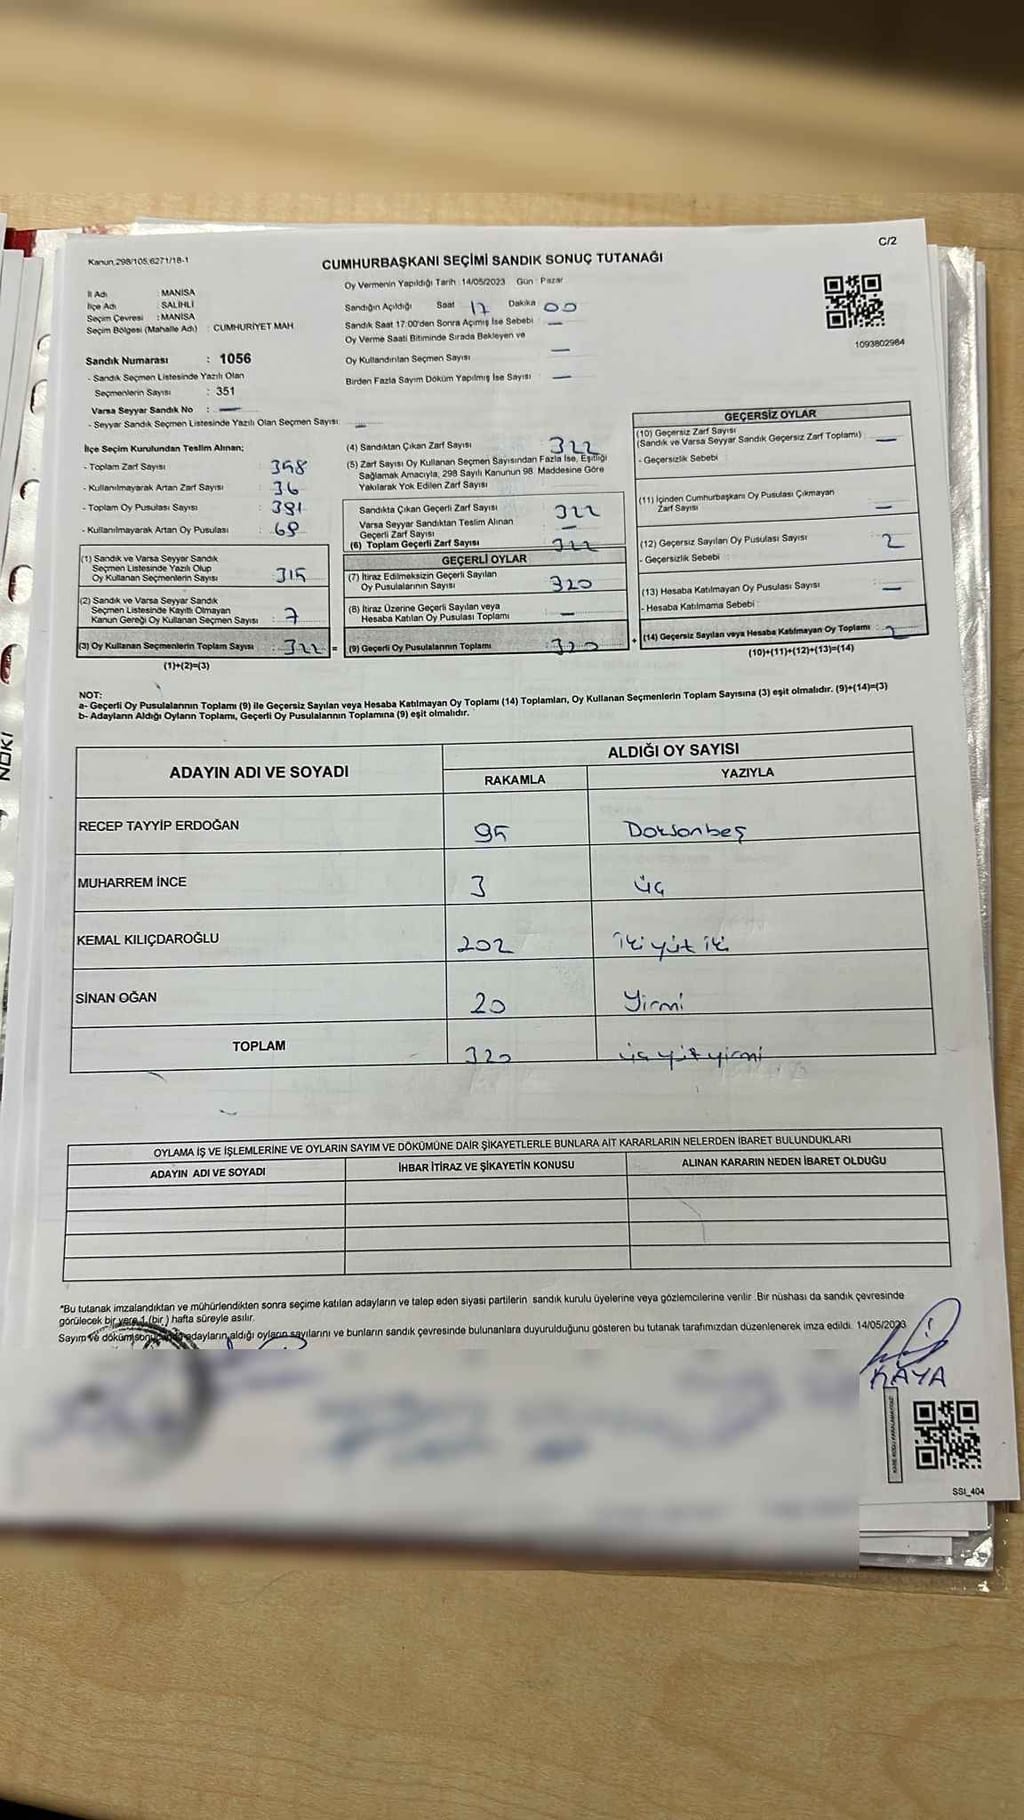 C/2
Kanun 298/105,6271/18-1
CUMHURBAŞKANI SEÇİMİ SANDIK SONUÇ TUTANAĞI
İl Adı : MANİSA
İlçe Adı : SALİHLİ
Seçim Çevresi : MANİSA
Seçim Bölgesi (Mahalle Adı) : CUMHURİYET MAH
Sandık Numarası : 1056
- Sandık Seçmen Listesinde Yazılı Olan
Seçmenlerin Sayısı : 351
Varsa Seyyar Sandık No : —
- Seyyar Sandık Seçmen Listesinde Yazılı Olan Seçmen Sayısı: —
Oy Vermenin Yapıldığı Tarih : 14/05/2023 Gün : Pazar
Sandığın Açıldığı Saat 17 Dakika 00
Sandık Saat 17:00'den Sonra Açımış İse Sebebi : —
Oy Verme Saati Bitiminde Sırada Bekleyen ve
Oy Kullandırılan Seçmen Sayısı —
Birden Fazla Sayım Döküm Yapılmış İse Sayısı : —
1093802984
İlçe Seçim Kurulundan Teslim Alınan;
- Toplam Zarf Sayısı : 358
- Kullanılmayarak Artan Zarf Sayısı : 36
- Toplam Oy Pusulası Sayısı : 391
- Kullanılmayarak Artan Oy Pusulası : 69
(1) Sandık ve Varsa Seyyar Sandık
Seçmen Listesinde Yazılı Olup
Oy Kullanan Seçmenlerin Sayısı : 315
(2) Sandık ve Varsa Seyyar Sandık
Seçmen Listesinde Kayıtlı Olmayan
Kanun Gereği Oy Kullanan Seçmen Sayısı : 7
(3) Oy Kullanan Seçmenlerin Toplam Sayısı : 322 =
(1)+(2)=(3)
(4) Sandıktan Çıkan Zarf Sayısı : 322
(5) Zarf Sayısı Oy Kullanan Seçmen Sayısından Fazla İse, Eşitliği
Sağlamak Amacıyla, 298 Sayılı Kanunun 98. Maddesine Göre
Yakılarak Yok Edilen Zarf Sayısı
Sandıkta Çıkan Geçerli Zarf Sayısı : 322
Varsa Seyyar Sandıktan Teslim Alınan
Geçerli Zarf Sayısı : —
(6) Toplam Geçerli Zarf Sayısı : 322
GEÇERLİ OYLAR
(7) İtiraz Edilmeksizin Geçerli Sayılan
Oy Pusulalarının Sayısı : 320
(8) İtiraz Üzerine Geçerli Sayılan veya
Hesaba Katılan Oy Pusulası Toplamı : —
(9) Geçerli Oy Pusulalarının Toplamı : 320 +
GEÇERSİZ OYLAR
(10) Geçersiz Zarf Sayısı
(Sandık ve Varsa Seyyar Sandık Geçersiz Zarf Toplamı) : —
- Geçersizlik Sebebi :
(11) İçinden Cumhurbaşkanı Oy Pusulası Çıkmayan
Zarf Sayısı : —
(12) Geçersiz Sayılan Oy Pusulası Sayısı : 2
- Geçersizlik Sebebi :
(13) Hesaba Katılmayan Oy Pusulası Sayısı : —
- Hesaba Katılmama Sebebi :
(14) Geçersiz Sayılan veya Hesaba Katılmayan Oy Toplamı : 2
(10)+(11)+(12)+(13)=(14)
NOT:
a- Geçerli Oy Pusulalarının Toplamı (9) ile Geçersiz Sayılan veya Hesaba Katılmayan Oy Toplamı (14) Toplamları, Oy Kullanan Seçmenlerin Toplam Sayısına (3) eşit olmalıdır. (9)+(14)=(3)
b- Adayların Aldığı Oyların Toplamı, Geçerli Oy Pusulalarının Toplamına (9) eşit olmalıdır.
ADAYIN ADI VE SOYADI
ALDIĞI OY SAYISI
RAKAMLA YAZIYLA
RECEP TAYYİP ERDOĞAN 95 Doksanbeş
MUHARREM İNCE 3 üç
KEMAL KILIÇDAROĞLU 202 İkiyüz iki
SİNAN OĞAN 20 Yirmi
TOPLAM 320 üçyüzyirmi
OYLAMA İŞ VE İŞLEMLERİNE VE OYLARIN SAYIM VE DÖKÜMÜNE DAİR ŞİKAYETLERLE BUNLARA AİT KARARLARIN NELERDEN İBARET BULUNDUKLARI
ADAYIN ADI VE SOYADI İHBAR İTİRAZ VE ŞİKAYETİN KONUSU ALINAN KARARIN NEDEN İBARET OLDUĞU
*Bu tutanak imzalandıktan ve mühürlendikten sonra seçime katılan adayların ve talep eden siyasi partilerin sandık kurulu üyelerine veya gözlemcilerine verilir. Bir nüshası da sandık çevresinde
görülecek bir yere 1 (bir) hafta süreyle asılır.
Sayım ve döküm sonucunda adayların aldığı oyların sayılarını ve bunların sandık çevresinde bulunanlara duyurulduğunu gösteren bu tutanak tarafımızdan düzenlenerek imza edildi. 14/05/2023
KAYA
SSI_404